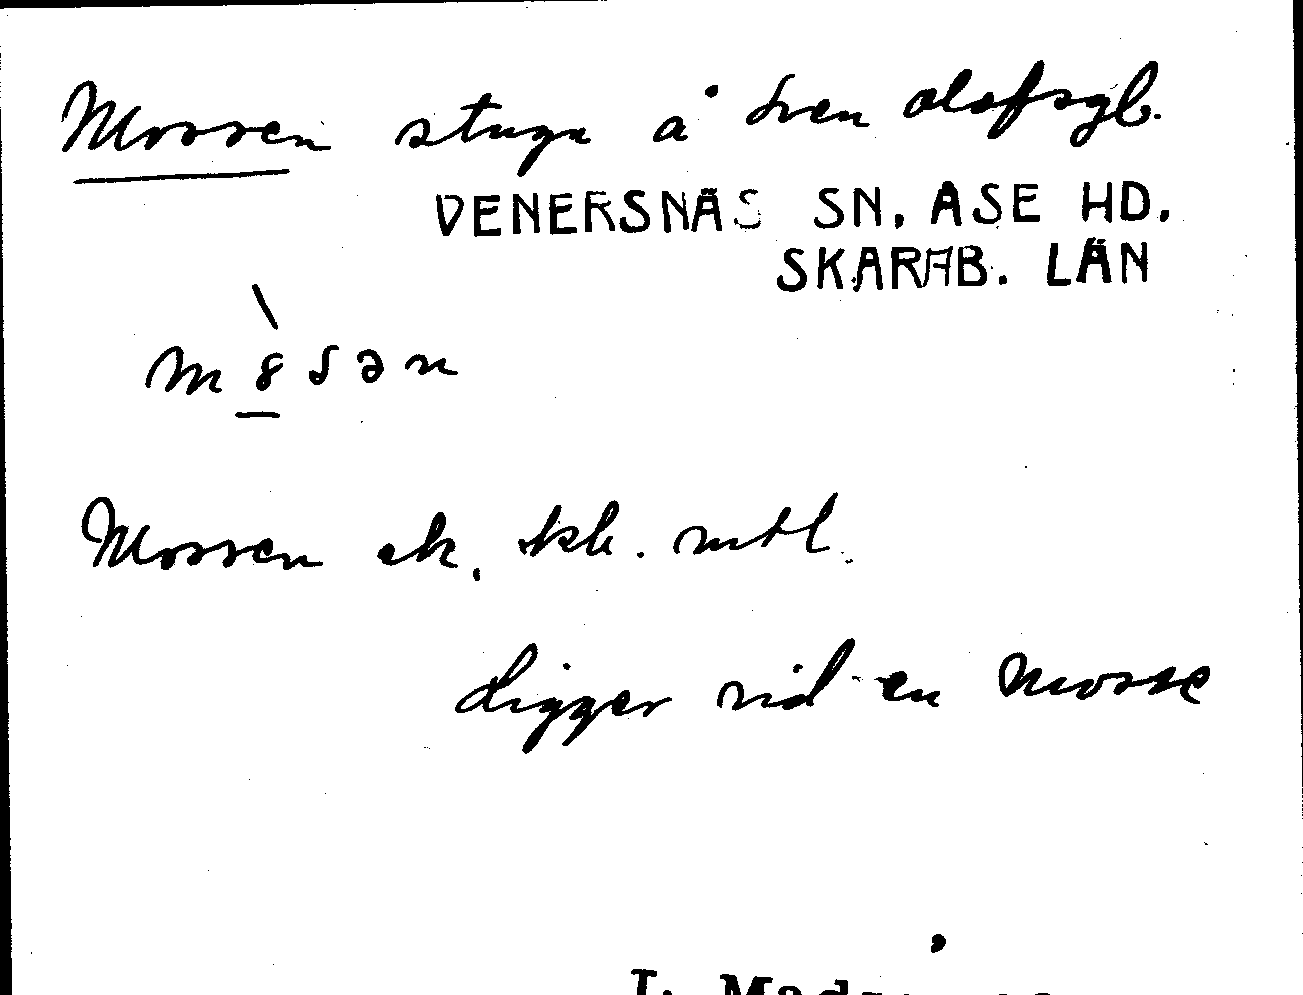 Mossen stuga å Sven Olofsgb.
VENERSNÄS SN, ASE HD.
SKARAB. LÄN
m8sən
Mossen ek. kb. mtl.
Ligger vid en Mosse